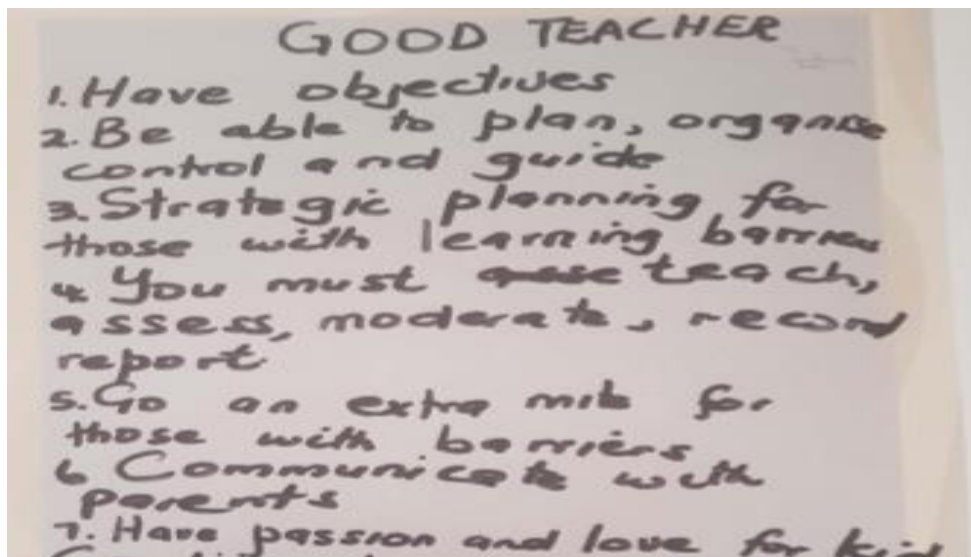 GOOD TEACHER
1. Have objectives
2. Be able to plan, organise
control and guide
3. Strategic planning for
those with learning barriers
4. You must teach,
assess, moderate, record
report
5. Go an extra mile for
those with barriers
6 Communicate with
parents
7. Have passion and love for